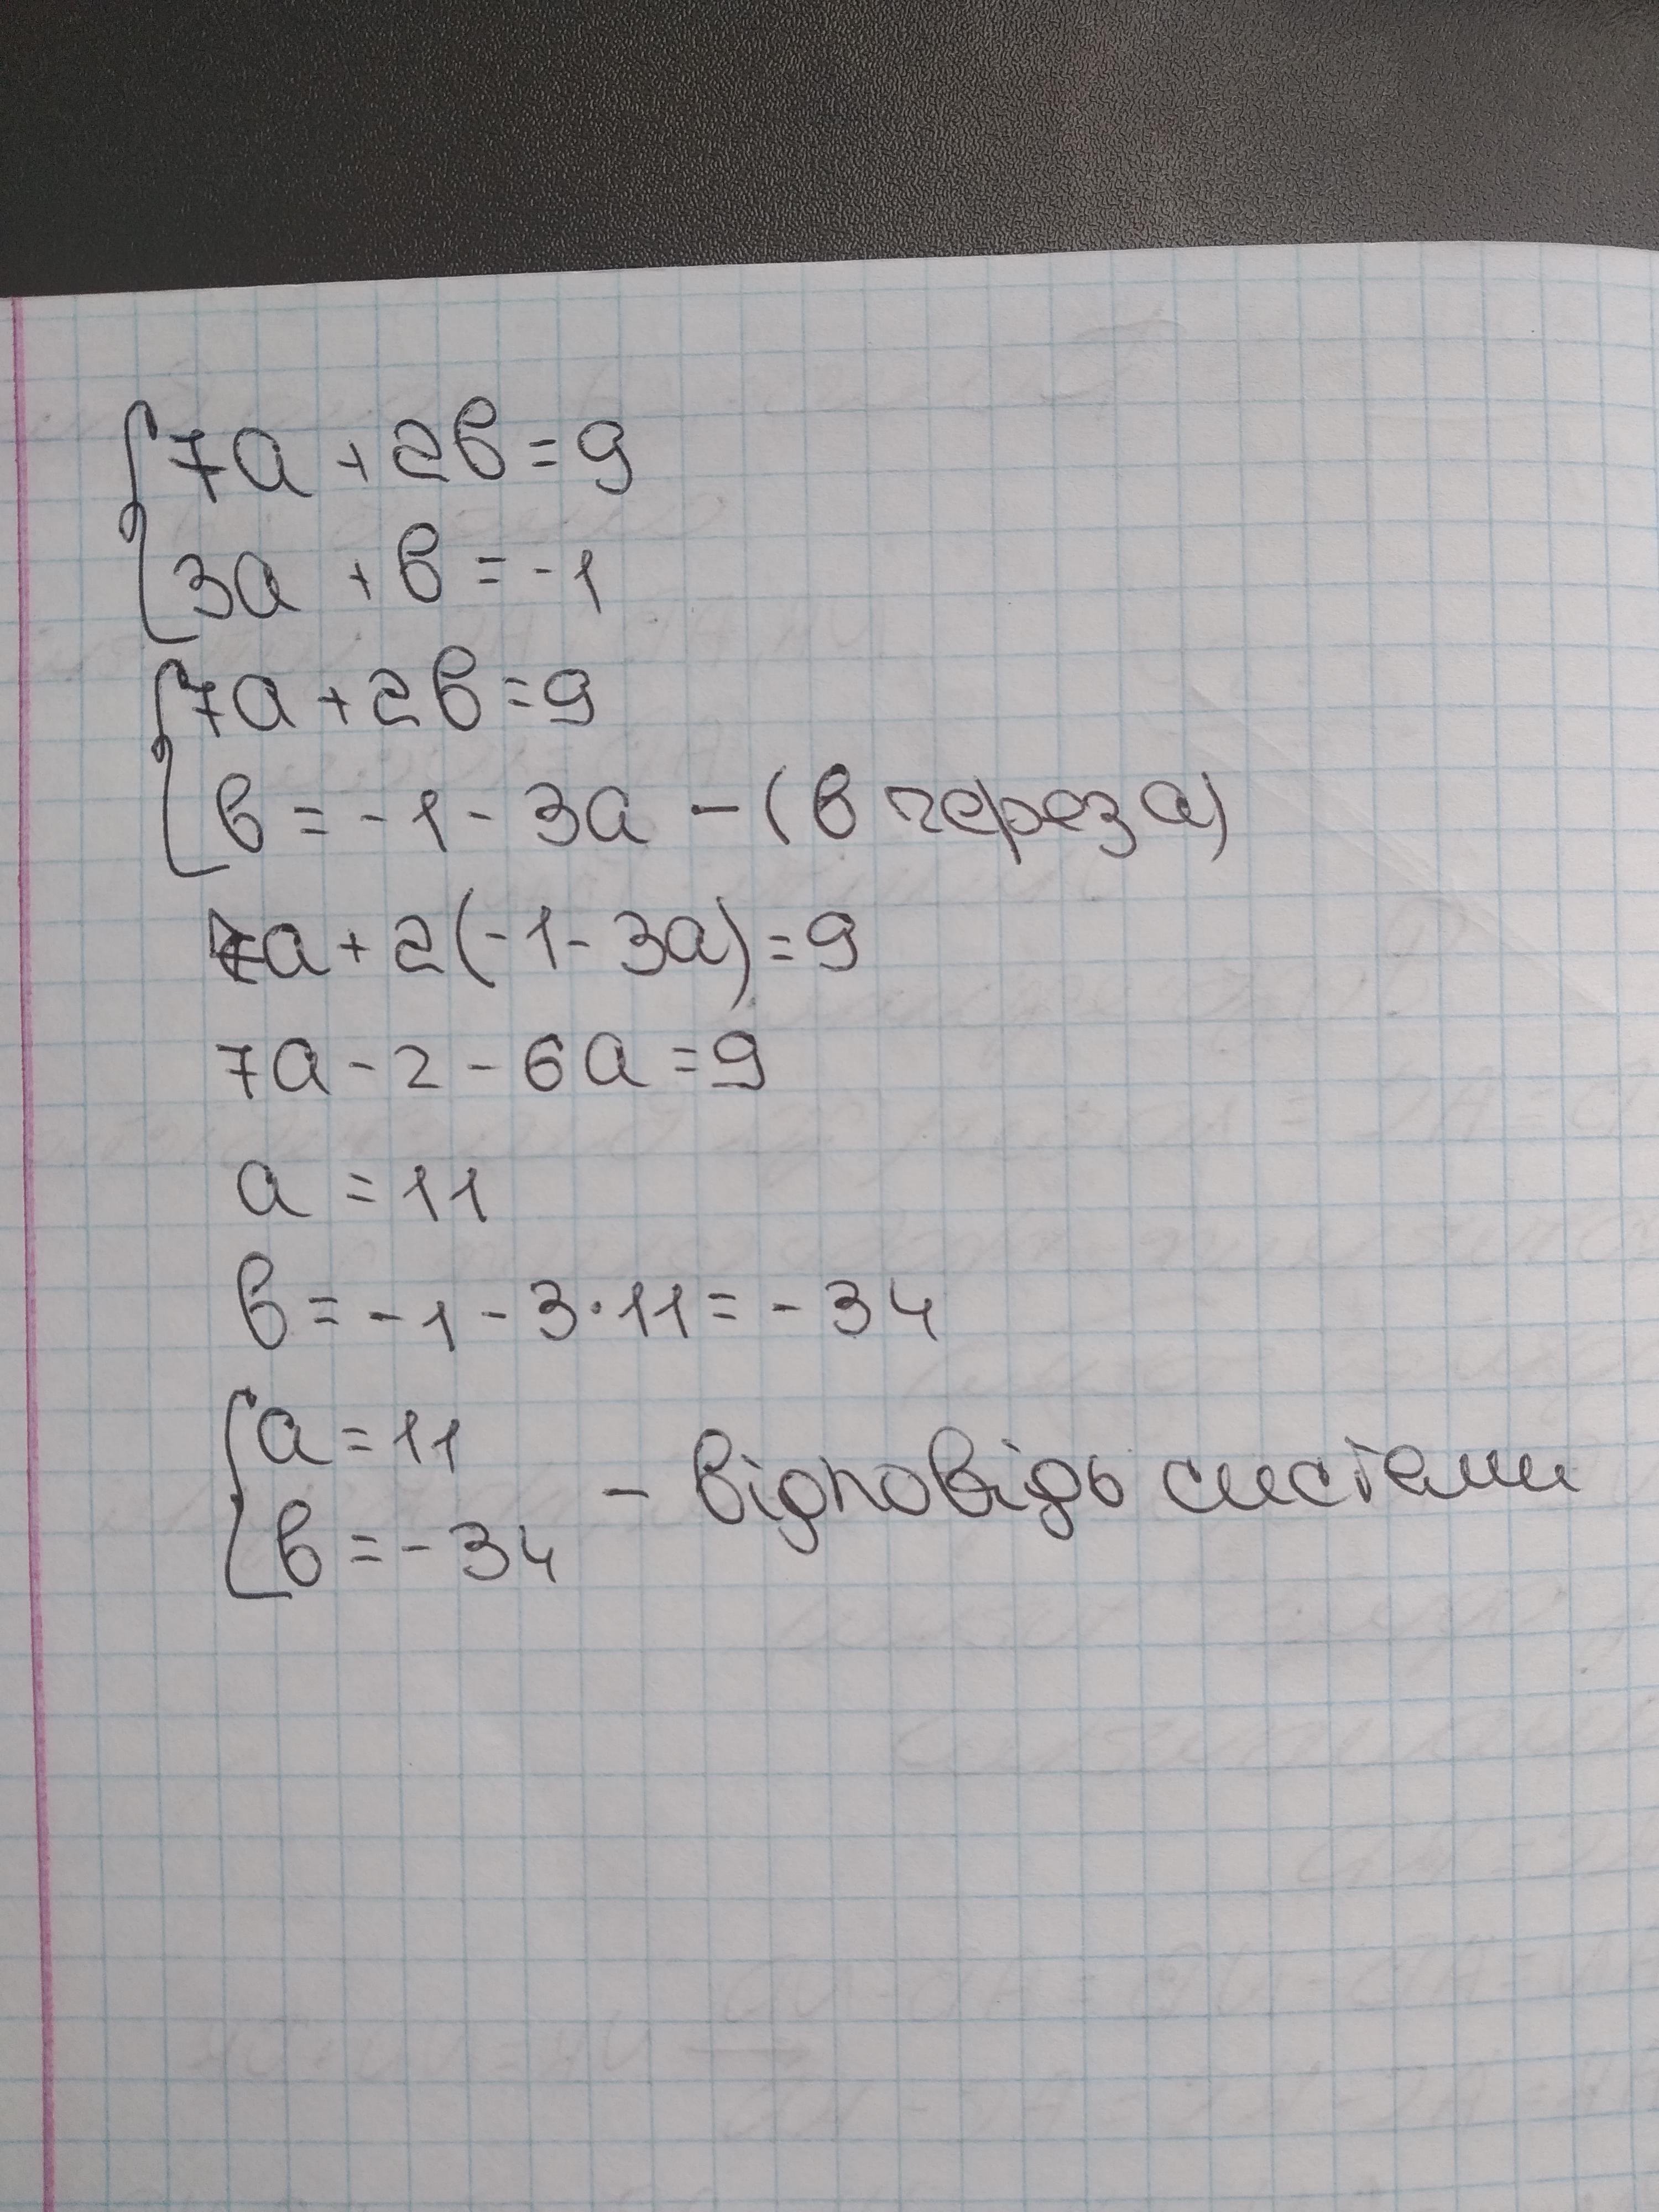 7a + 2b = 9
3a + b = -1
7a + 2b = 9
b = -1 - 3a - (b через a)
7a + 2(-1 - 3a) = 9
7a - 2 - 6a = 9
a = 11
b = -1 - 3·11 = -34
a = 11
b = -34 - відповідь системи